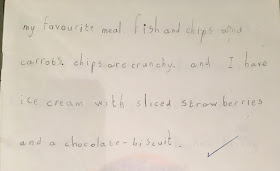 my favourite meal fish and chips and
carrots. chips are crunchy. and I have
ice cream with sliced strawberries
and a chocolate-biscuit.